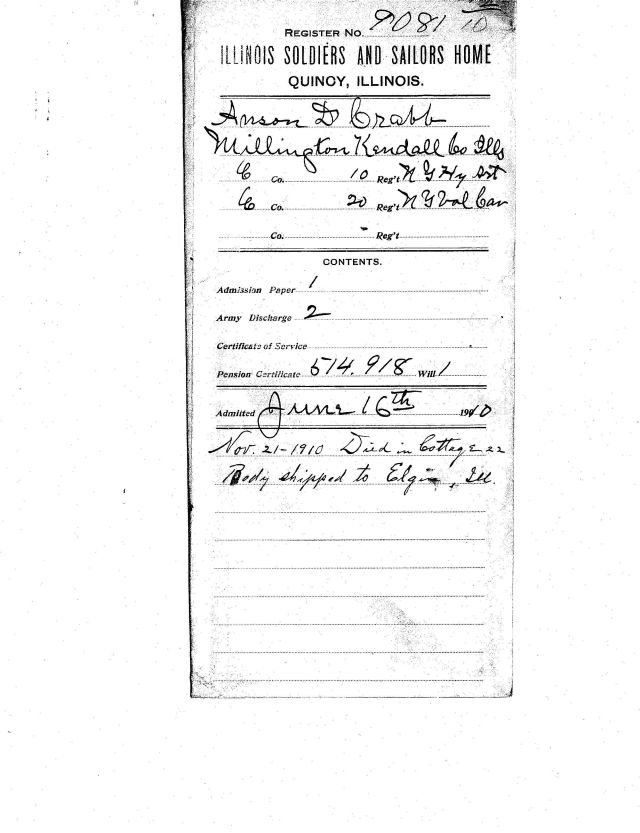 REGISTER No. 9081 10
ILLINOIS SOLDIERS AND SAILORS HOME
QUINCY, ILLINOIS.
Anson D Crabb
Millington Kendall Co Ills
C Co. 10 Reg't N Y Hy Art
C Co. 20 Reg't N Y Vol Cav
Co. - Reg't
CONTENTS.
Admission Paper 1
Army Discharge 2
Certificate of Service
Pension Certificate 514,918 Will 1
Admitted June 16th 1910
Nov. 21-1910 Died in Cottage 22
Body shipped to Elgin, Ill.